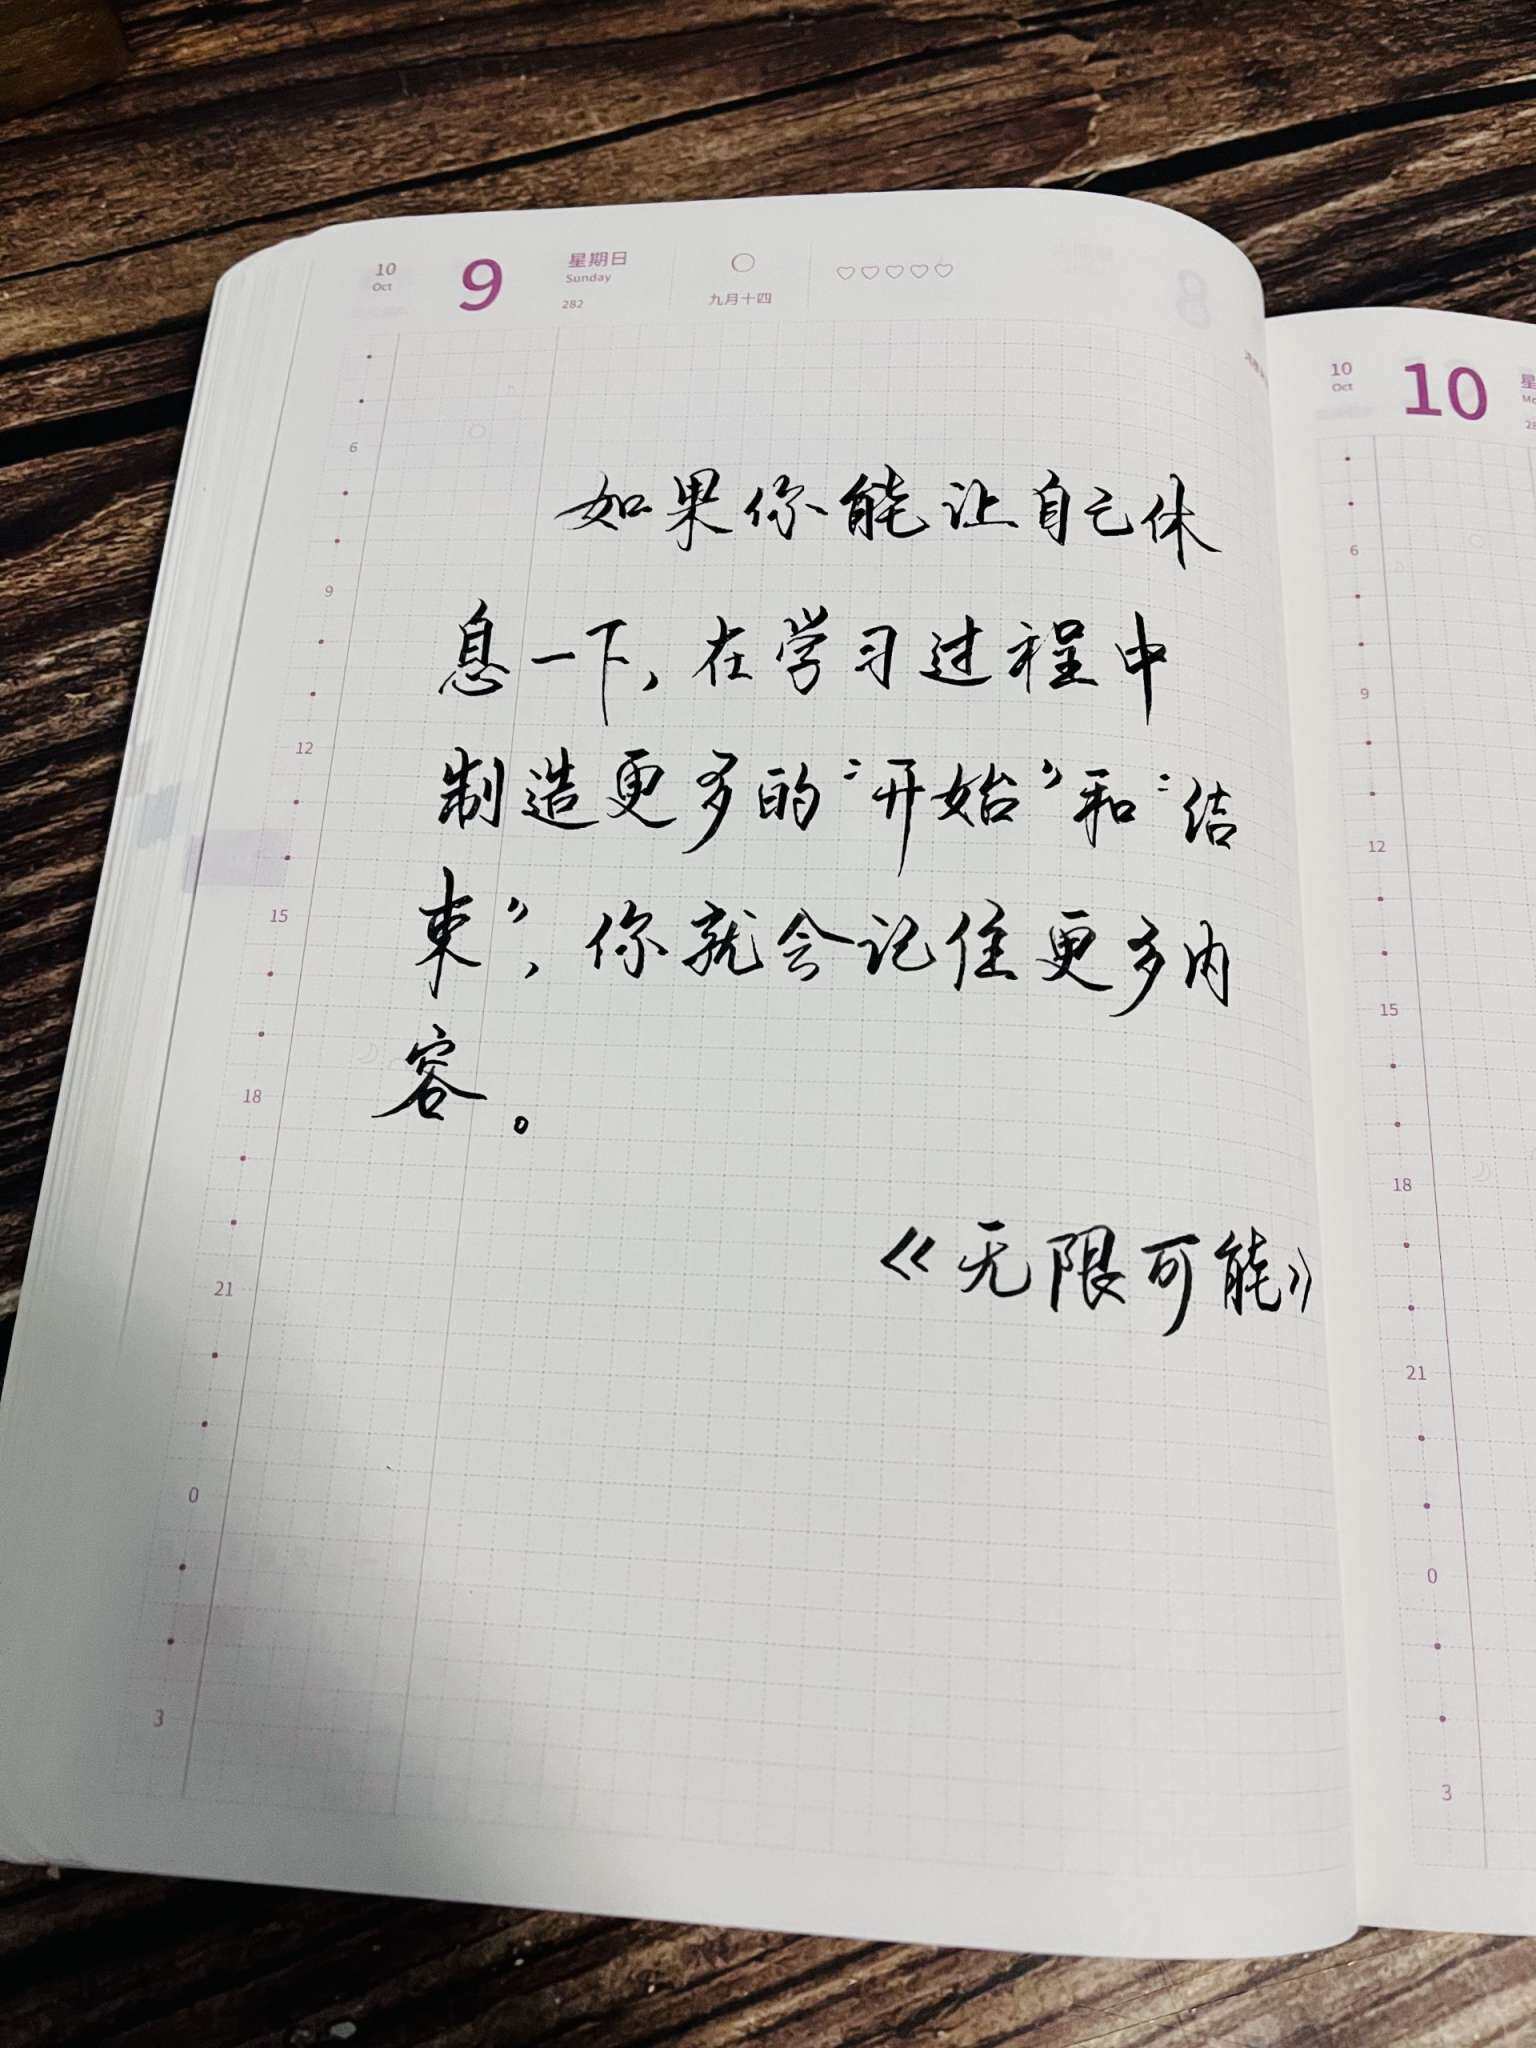 10
Oct
9
星期日
Sunday
282
九月十四
6
9
12
15
18
21
0
3
如果你能让自己休
息一下，在学习过程中
制造更多的“开始”和“结
束”，你就会记住更多内
容。
《无限可能》
10
Oct
10
星
6
9
12
15
18
21
0
3